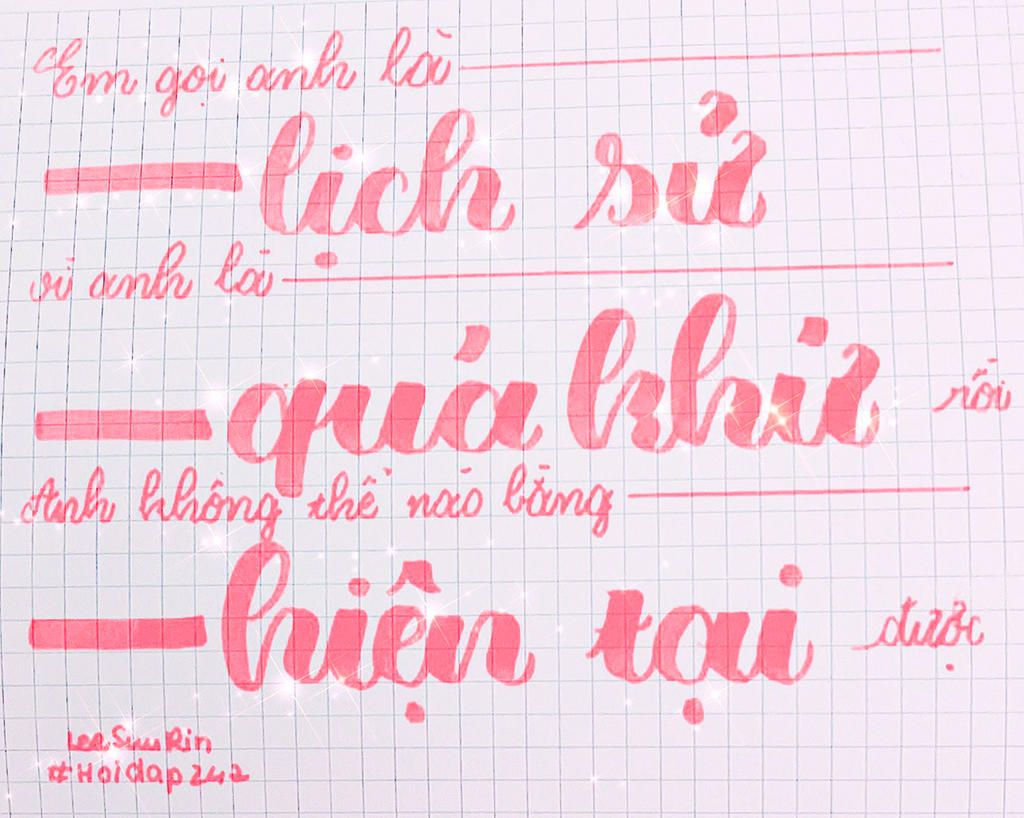 Em gọi anh là
lịch sử
vì anh là
quá khứ rồi
Anh không thể nào bằng
hiện tại được
LeeSuuRin
#Hoidap242